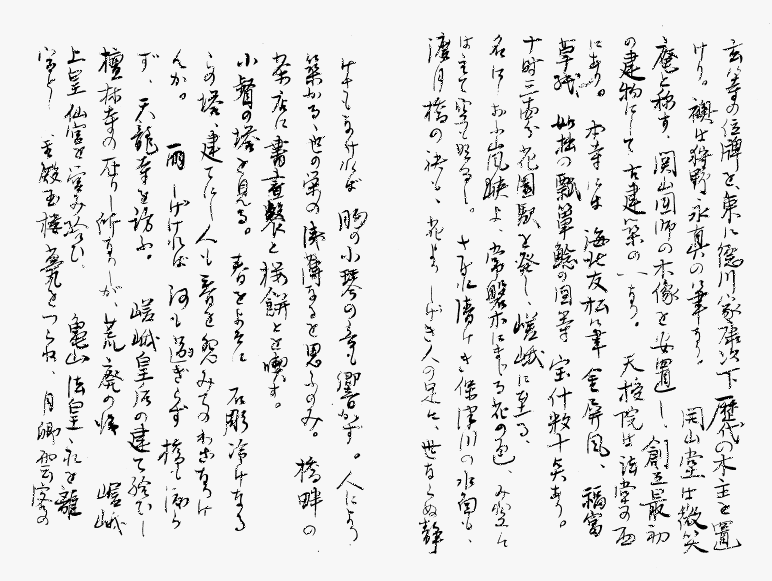 玄等の位牌を、東に徳川家康以下歴代の木主を置
けり。襖は狩野永真の筆なり。開山堂は微笑
庵と称す、関山国師の木像を安置し、創立最初
の建物にして古建築の一なり。天授院は法堂の西
にあり。本寺には海北友松の筆金屏風、福富
草紙、如拙の瓢箪鯰の図等宝什数十点あり。
十時三十分花園駅を発し、嵯峨に至る。
名にしおふ嵐峡よ、常磐木にまじる花の色、み空に
はえて 。げに清けき保津川の水の色も、
渡月橋の袂も、花よりしげき人の足に、世ならぬ静
けさもなければ 小琴の音も響かず。人により
築かるゝ世の栄の薄薄なるを思ふのみ。橋畔の
茶店に 桜餅とを喫す。
小督の塔を見る。春をよそに石彫冷けなる
この塔、建てにし人も春を怨みてのわざなりけ
んか。雨しげければ河も過ぎらず橋も渡ら
ず、天龍寺を訪ふ。嵯峨皇后の建て給ひし
檀林寺の在りし所なりしが、荒廃の後嵯峨
上皇仙宮を営み給ひ、亀山法皇永を離
宮とし 玉殿玉楼甍をつらね、月卿雲客の